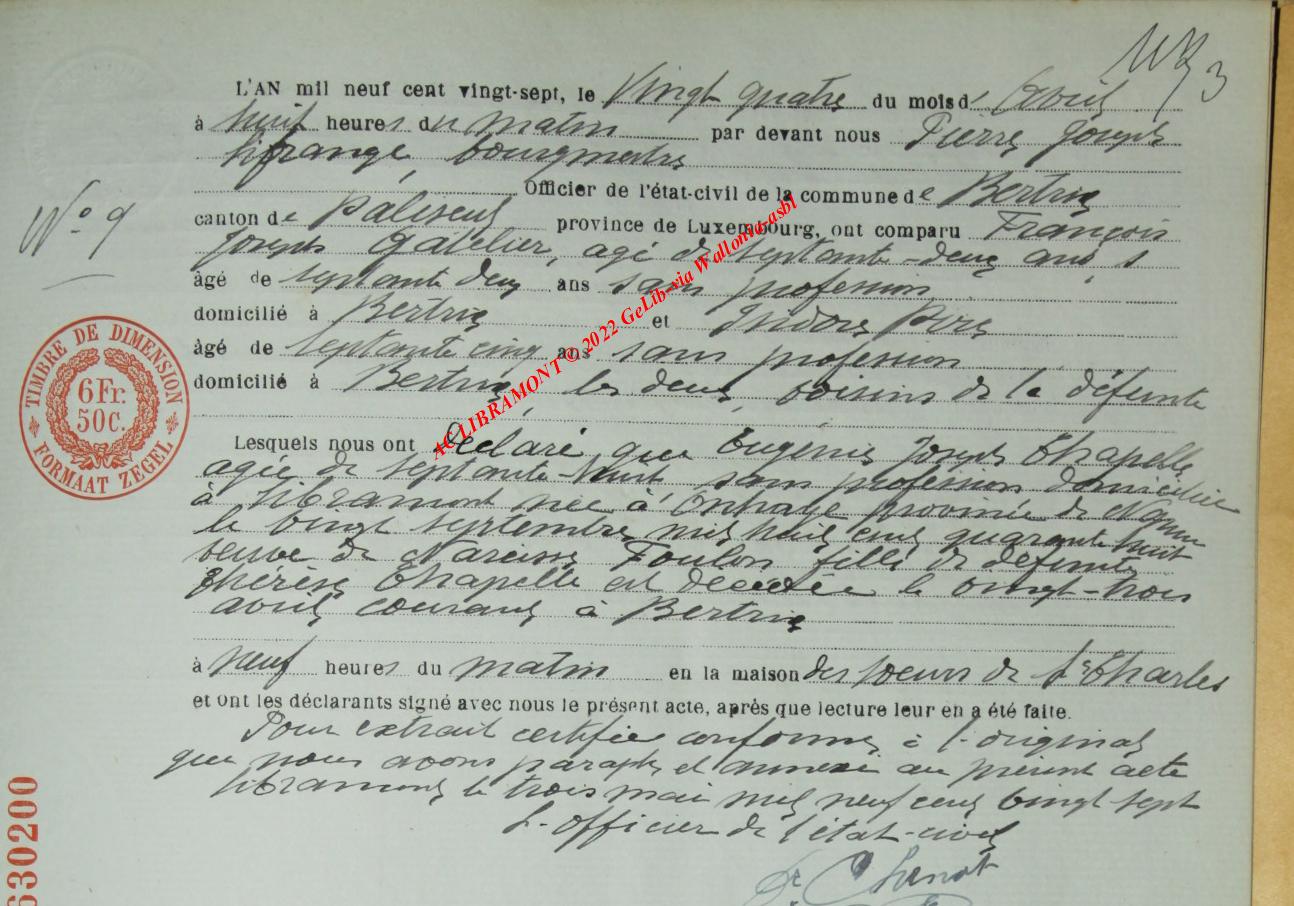 3
L'AN mil neuf cent vingt-sept, le Vingt quatre du mois d' Avril
à huit heures du matin par devant nous Pierre Joseph
bourgmestre
Officier de l'état-civil de la commune de Bertrix
N° 9
canton de Paliseul province de Luxembourg, ont comparu François
Joseph Gatelier, agé de septante-deux ans,
âgé de septante deux ans sans profession
domicilié à Bertrix et Isidore
âgé de septante cinq ans sans profession
domicilié à Bertrix, les deux voisins de la défunte
Lesquels nous ont déclaré que Eugénie Joseph Chapelle
agée de septante-huit sans profession domiciliée
à Libramont née à Onhaye province de Namur
le vingt septembre mil huit cent quarante huit
veuve de Narcisse Toulon fille de défunte
Thérèse Chapelle est decedée le vingt-trois
avril courant à Bertrix
à neuf heures du matin en la maison des soeurs de St Charles
et ont les déclarants signé avec nous le présent acte, après que lecture leur en a été faite.
Pour extrait certifié conforme à l'original
que nous avons paraphé et annexé au présent acte
Libramont le trois mai mil neuf cent vingt sept
L'officier de l'état-civil
TIMBRE DE DIMENSION
6Fr.
50c.
FORMAAT ZEGEL
630200
AC LIBRAMONT © 2022 GeLib-via Wallonia-asbl